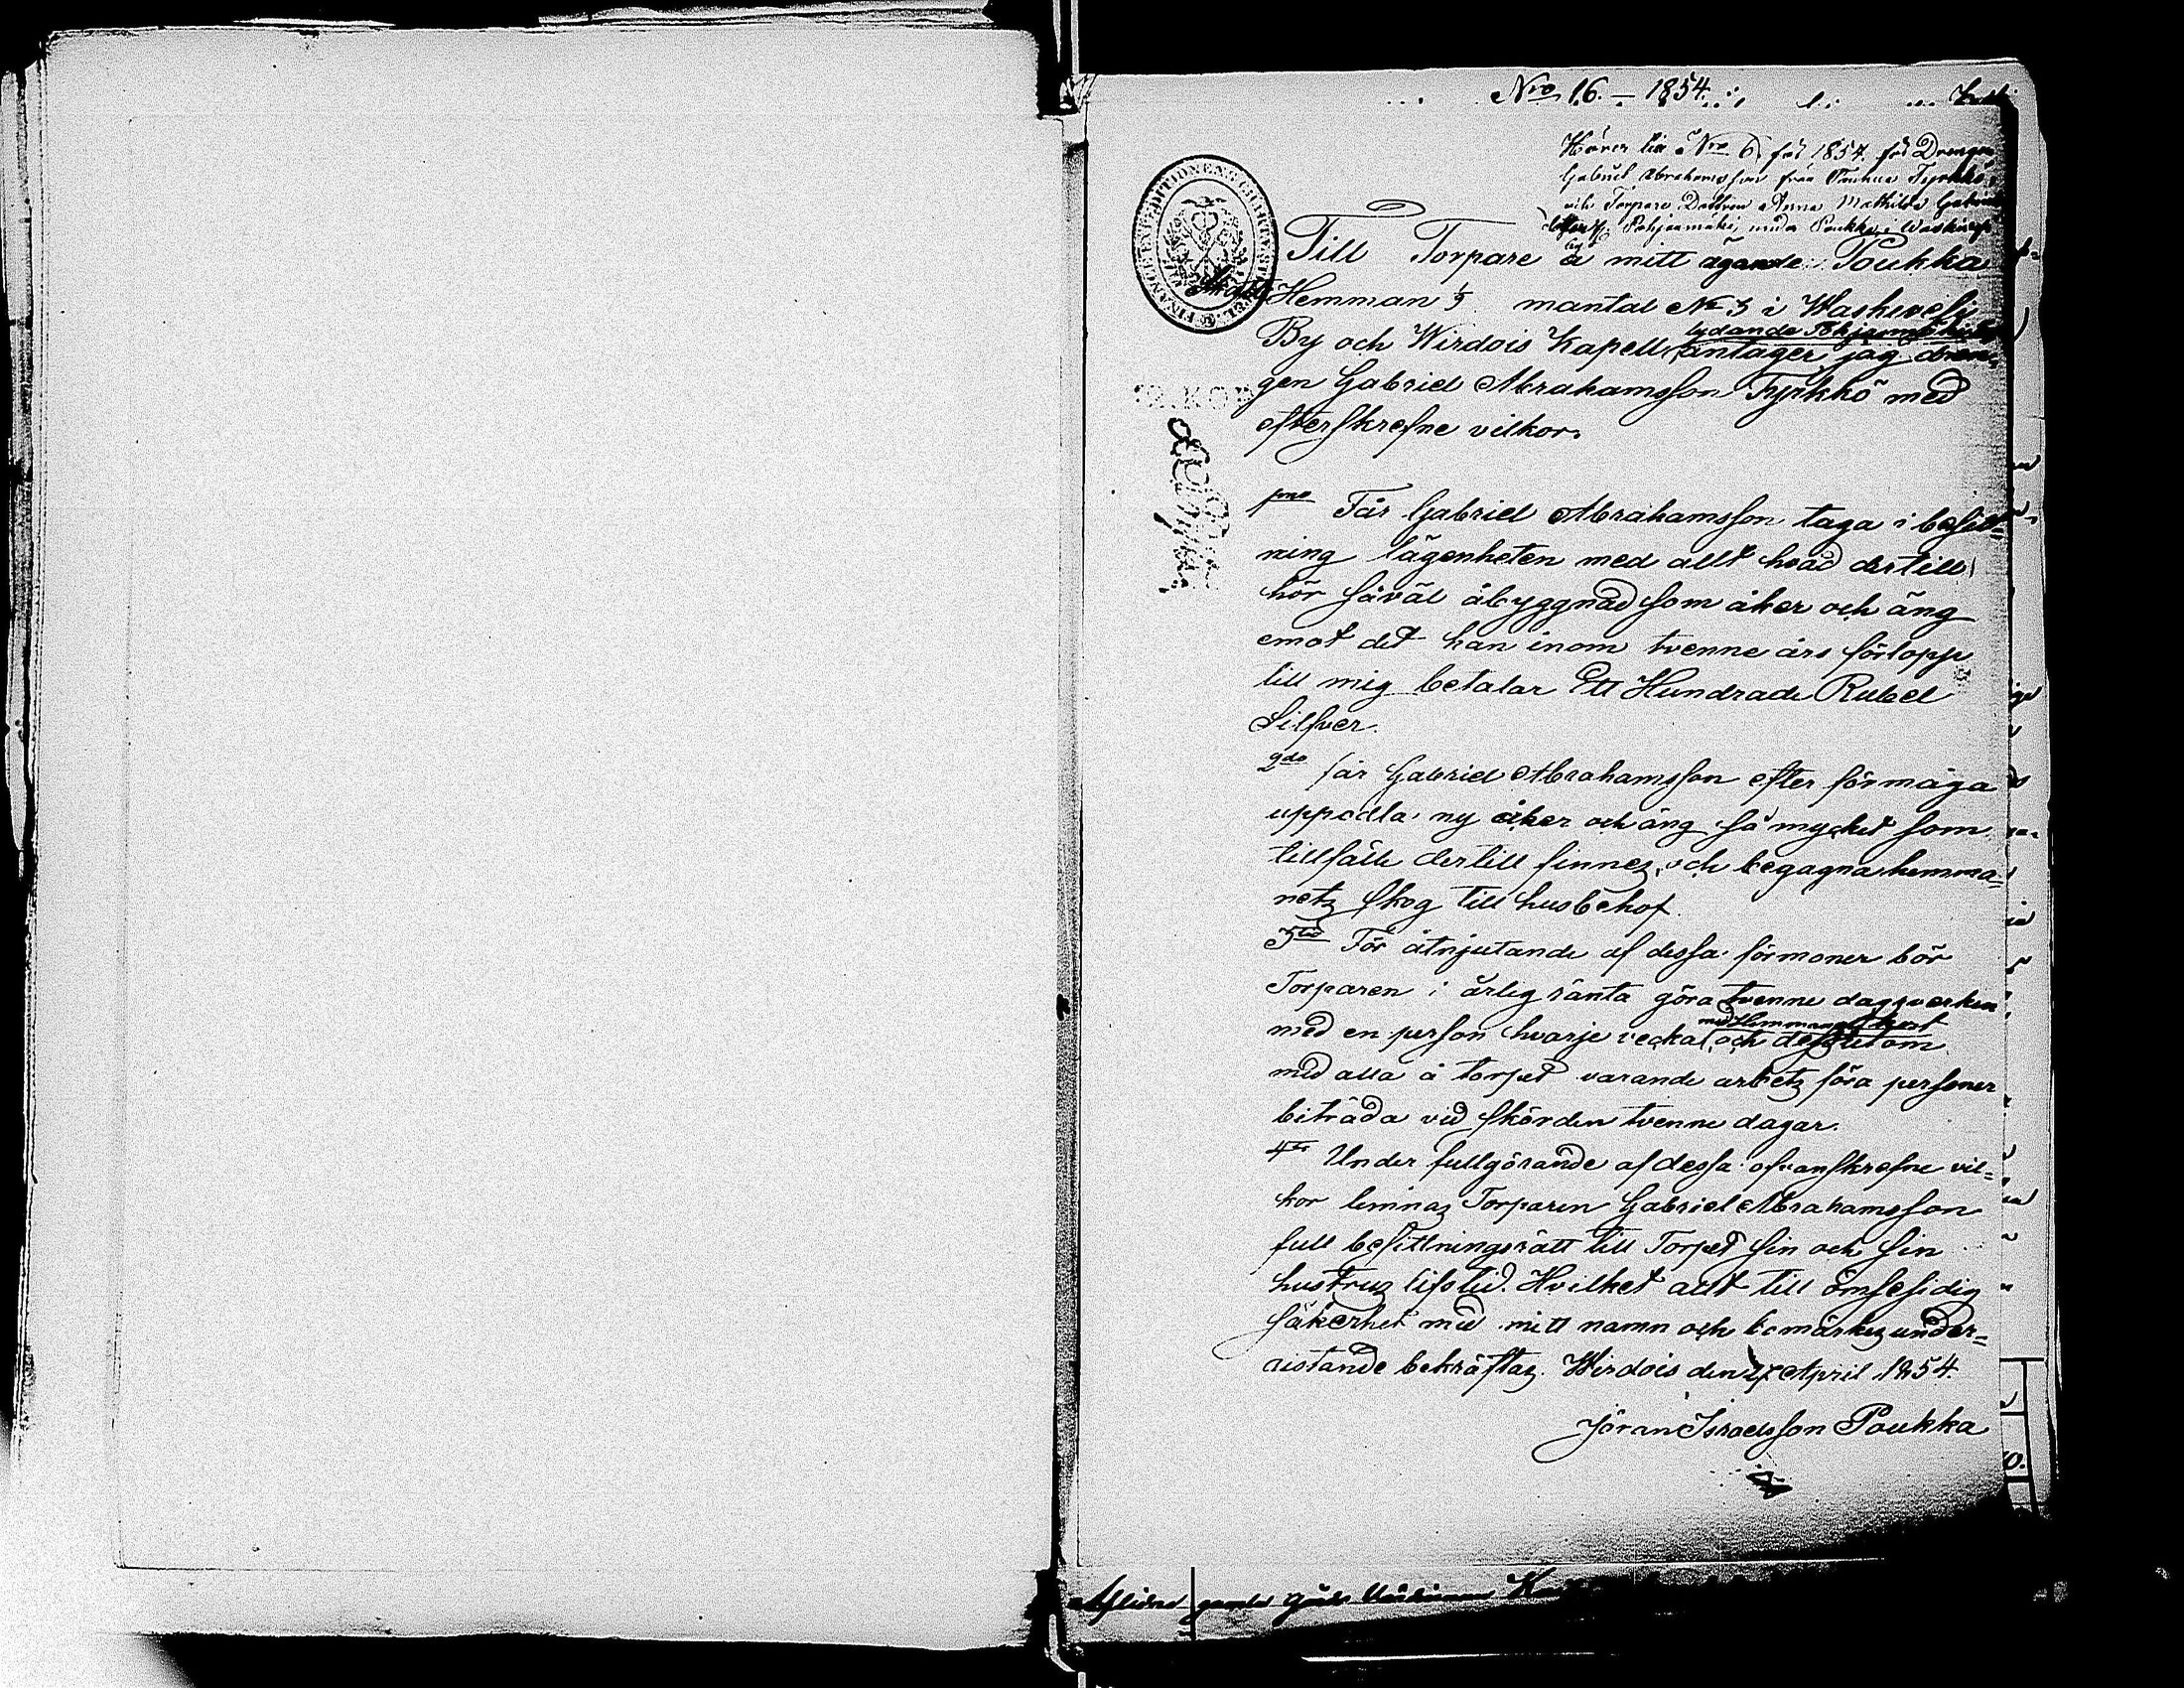 Nro 16. - 1854.
Hörer till Nro 6 för 1854. för Drengen
Gabriel Abrahamsson från Tyrkkö,
och Torpare Dottren Anna Mathilda Gabriels
dotter Pohjanmäki, under Poukka i Waskivesi
by
FINANCE EXPEDITIONENS CHARTÆ STEMPEL
Till Torpare å mitt ägande Poukka
Skatte Hemman 1/3 mantal No 3 i Waskivesi
By och Wirdois Kapell lydande Pohjanmäki
antager jag dren-
gen Gabriel Abrahamsson Tyrkkö med
efterskrefne vilkor.
1mo Får Gabriel Abrahamsson taga i besitt=
ning lägenheten med allt hvad dertill
hör såväl åbyggnad som åker och äng
emot det han inom tvenne års förlopp
till mig betalar Ett Hundrade Rubel
Silfver.
2do får Gabriel Abrahamsson efter förmåga
uppodla ny åker och äng så mycket som
tillfälle dertill finnes, och begagna hemma=
nets skog till husbehof.
3tio För åtnjutande af dessa förmoner bör
Torparen i årlig ränta göra tvenne dagsverken
med en person hvarje vecka med Hemmanets kost och dessutom
med alla å torpet varande arbets föra personer
biträda vid skörden tvenne dagar.
4to Under fullgörande af dessa ofvanskrefne vil=
kor lemnas Torparen Gabriel Abrahamsson
full besittningsrätt till Torpet sin och sin
hustrus lifstid. Hvilket allt till ömsesidig
säkerhet med mitt namn och bomärkes under=
ristande bekräftas. Wirdois den 17 April 1854.
Jöran Israelsson Poukka